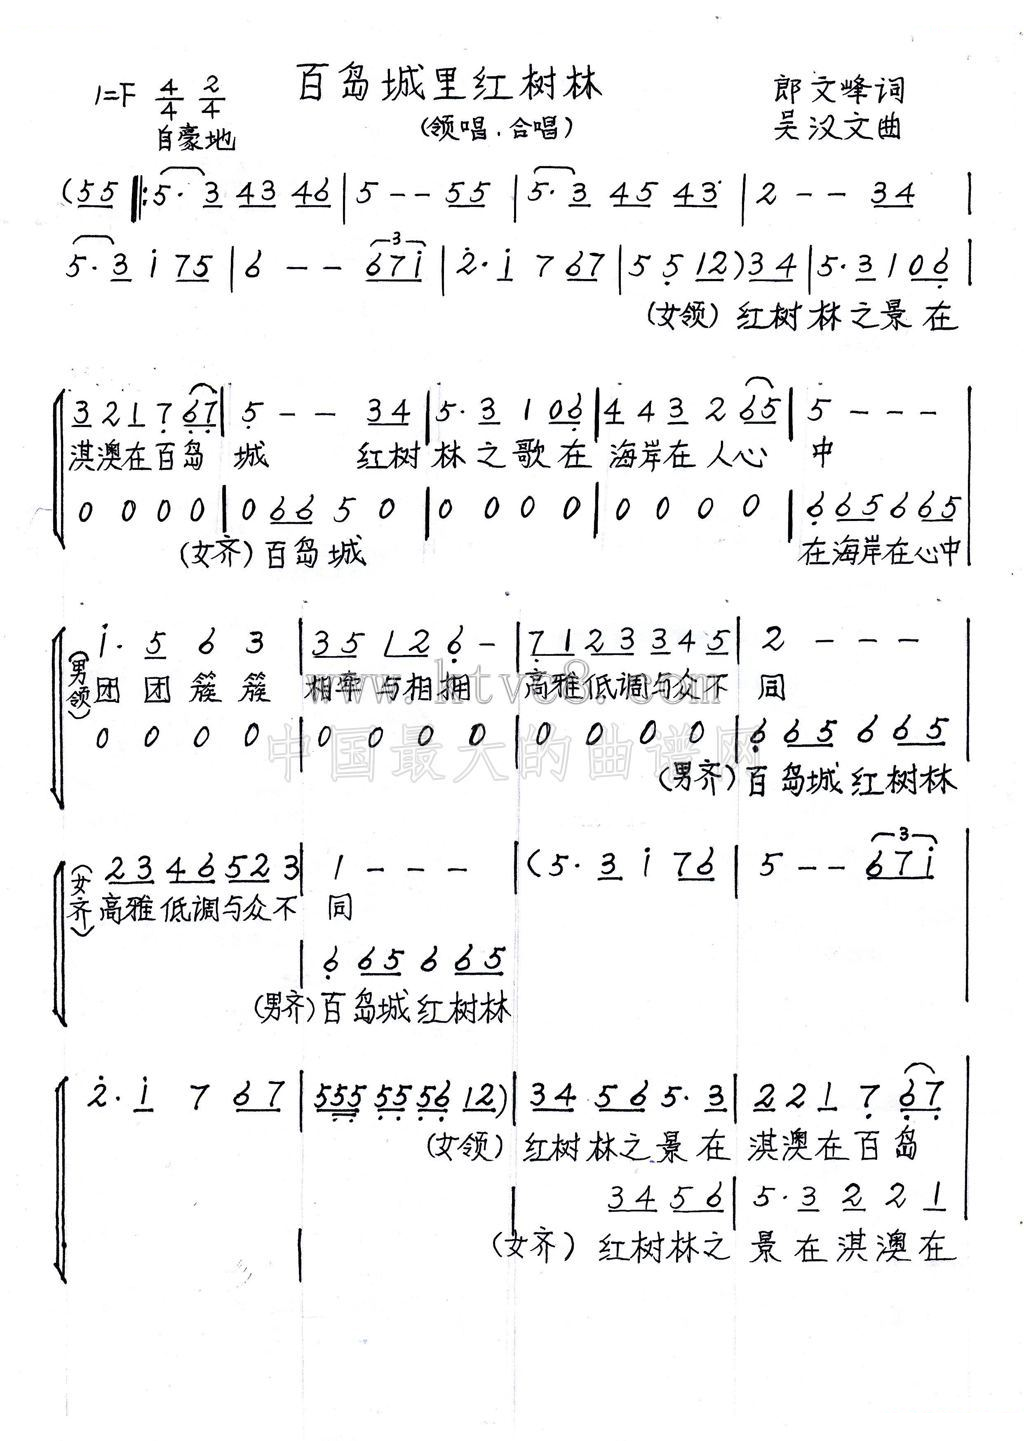 百岛城里红树林
1=F 4/4 2/4
郎文峰词
自豪地
(领唱.合唱)
吴汉文曲
(55 |: 5·3 43 46 | 5 - - 55 | 5·3 45 43 | 2 - - 34 |
5·3 i 75 | 6 - - 67i | 2·i 7 67 | 5 5 12) 34 | 5·3 1 06 |
(女领) 红树林之景在
3 2 1 7 67 | 5 - - 34 | 5·3 1 06 | 4 4 3 2 65 | 5 - - - |
淇澳在百岛 城 红树林之歌在 海岸在人心 中
0 0 0 0 | 0 66 5 0 | 0 0 0 0 | 0 0 0 0 | 6 65 6 65 |
(女齐) 百岛城 在海岸在心中
(男领) i·5 6 3 | 35 12 6 - | 71 23 34 5 | 2 - - - |
团团簇簇 相牵与相拥 高雅低调与众不 同
0 0 0 0 | 0 0 0 0 | 0 0 0 0 | 6 65 6 65 |
(男齐) 百岛城红树林
www.ktvc8.com
中国最大的曲谱网
(女齐) 23 46 52 3 | 1 - - - | (5·3 i 76 | 5 - - 67i |
高雅低调与众不 同
6 65 6 65
(男齐) 百岛城红树林
2·i 7 67 | 555 55 56 12) | 34 56 5·3 | 2 2 1 7 67 |
(女领) 红树林之景在 淇澳在百岛
34 56 | 5·3 2 2 1
(女齐) 红树林之 景在淇澳在